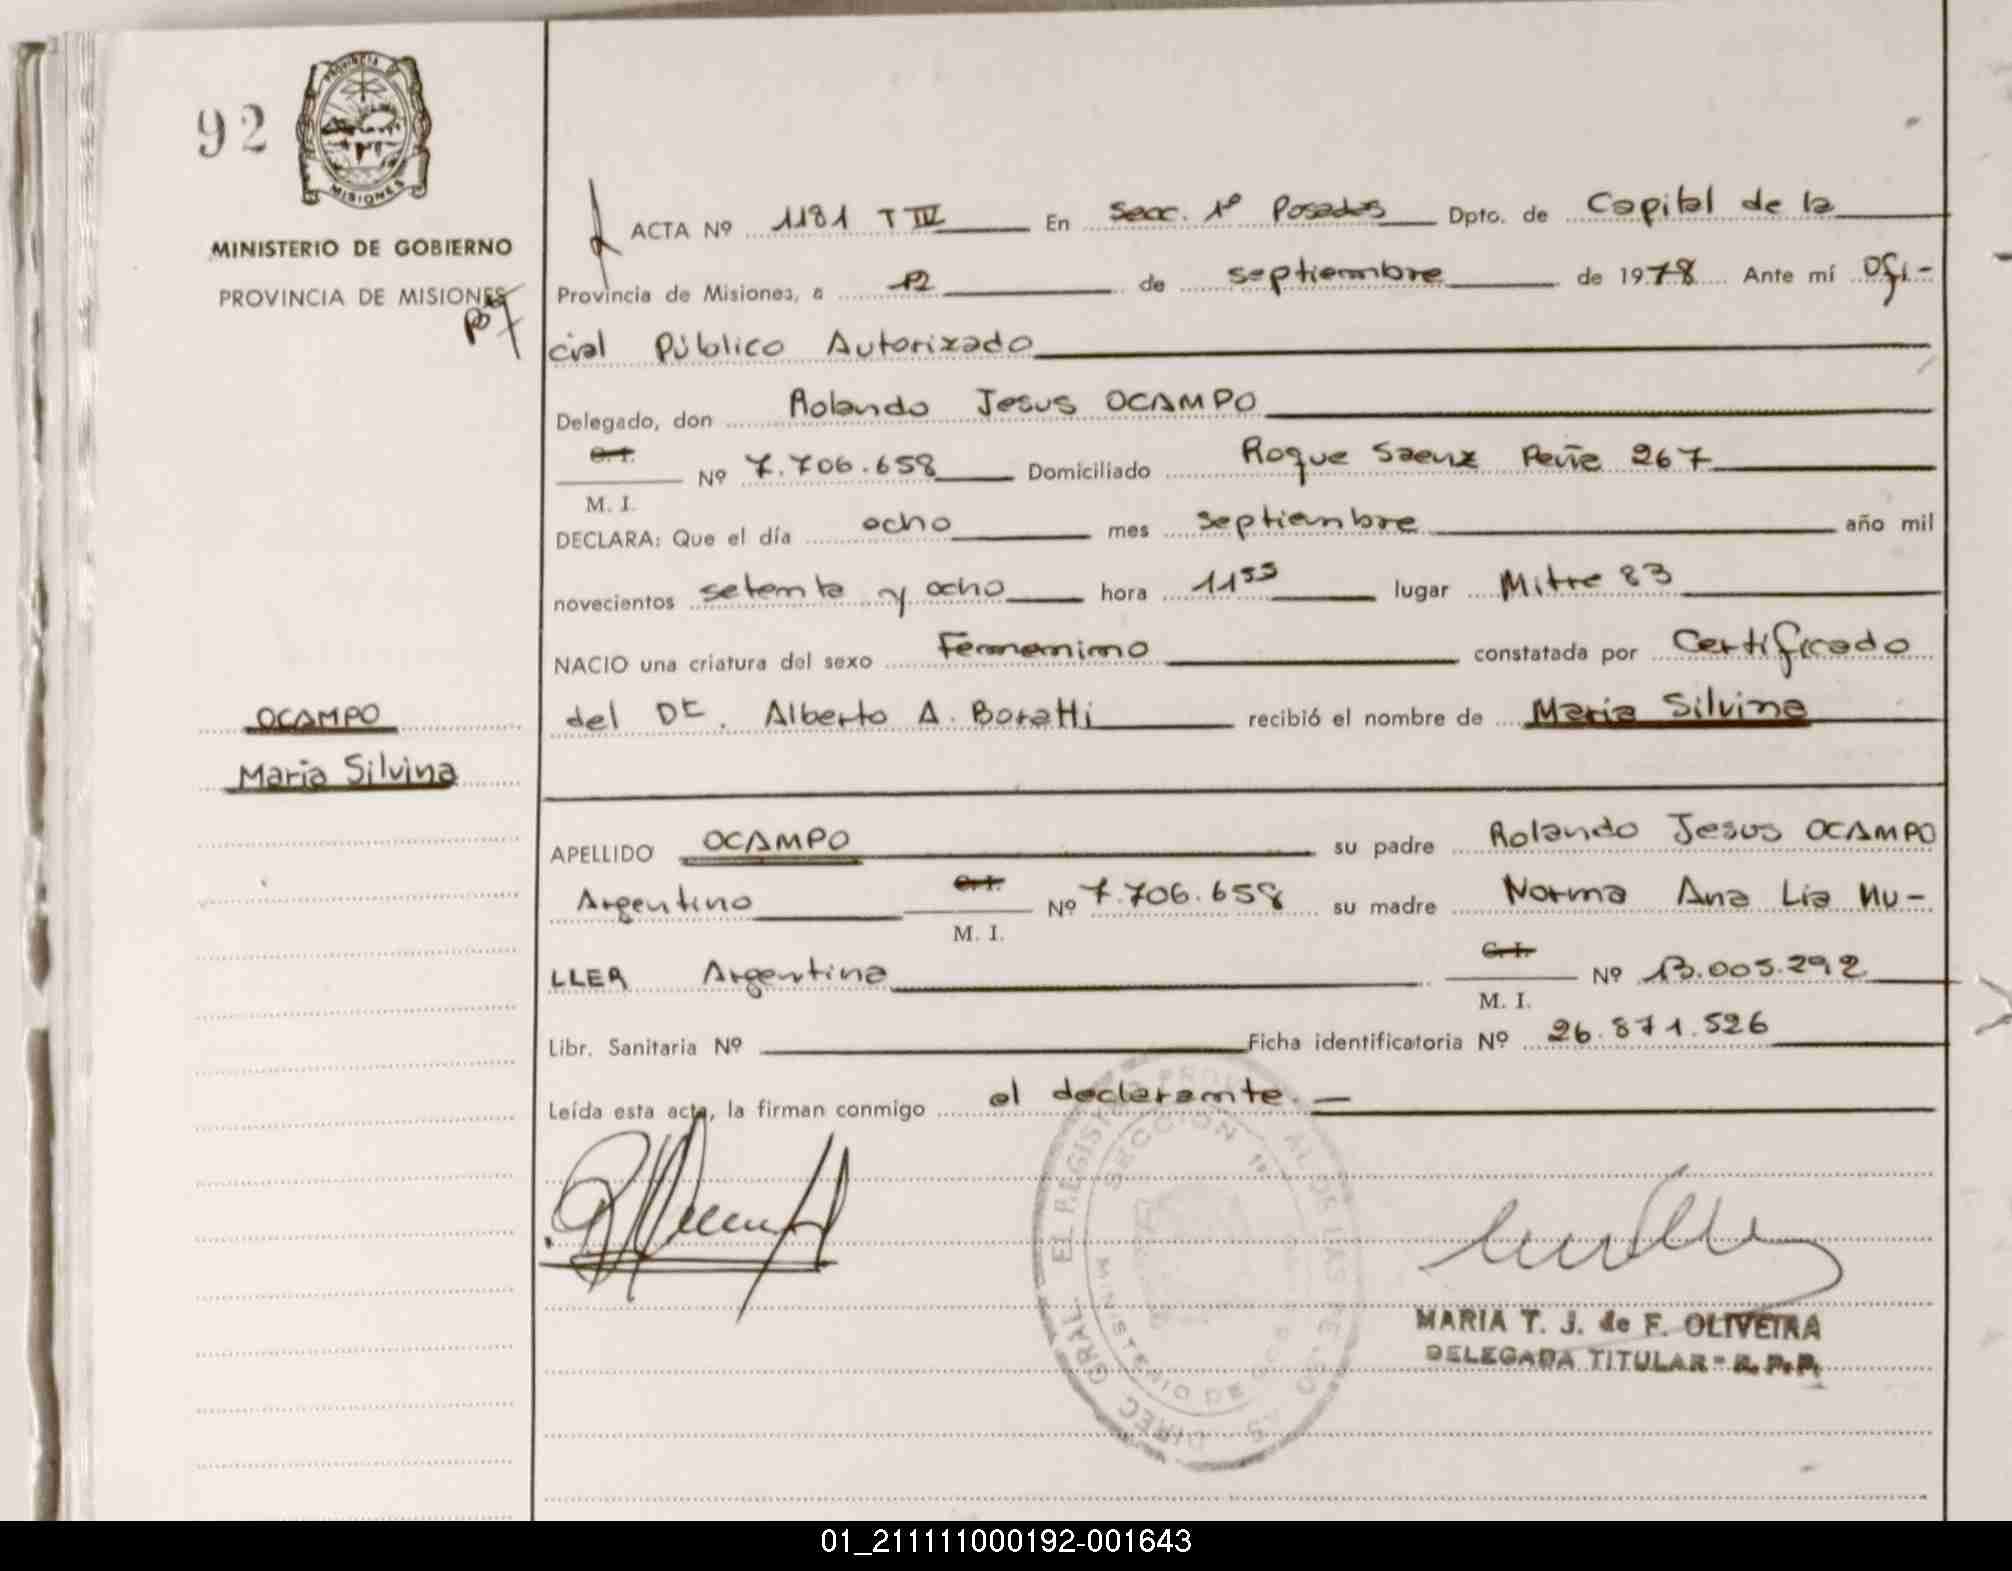 92
PROVINCIA DE
MISIONES
MINISTERIO DE GOBIERNO
PROVINCIA DE MISIONES
ACTA Nº 1181 T IV En Secc. 1º Posadas Dpto. de Capital de la
Provincia de Misiones, a 12 de septiembre de 1978 Ante mí Ofi-
cial Público Autorizado
Delegado, don Rolando Jesus OCAMPO
C. I.
Nº 7.706.658 Domiciliado Roque Saenz Peña 267
M. I.
DECLARA: Que el día ocho mes septiembre año mil
novecientos setenta y ocho hora 11 55 lugar Mitre 83
NACIO una criatura del sexo Femenino constatada por Certificado
del Dr. Alberto A. Boratti recibió el nombre de Maria Silvina
OCAMPO
Maria Silvina
APELLIDO OCAMPO su padre Rolando Jesus OCAMPO
Argentino C. I. Nº 7.706.658 su madre Norma Ana Lia MU-
M. I.
LLER Argentina C. I. Nº 13.005.292
M. I.
Libr. Sanitaria Nº Ficha identificatoria Nº 26.871.526
Leída esta acta, la firman conmigo el declarante.—
DIREC. GRAL. EL REGISTRO PROV AL DE LAS PERSONAS
SECCION 1ª
MINISTERIO DE GOB
MARIA T. J. de F. OLIVEIRA
DELEGADA TITULAR - R. P. P.
01_211111000192-001643